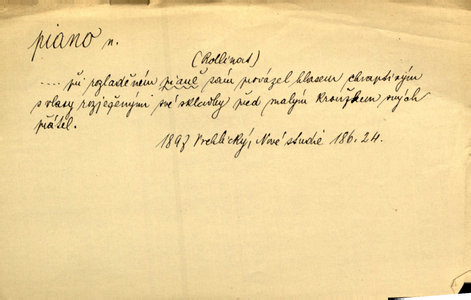 piano n.
(Rollinat)
.... při rozladěném pianě sám provázel hlasem chraptivým
s vlasy rozježenými své skladby před malým kroužkem svých
přátel.
1897 Vrchlický, Nové studie 186.24.